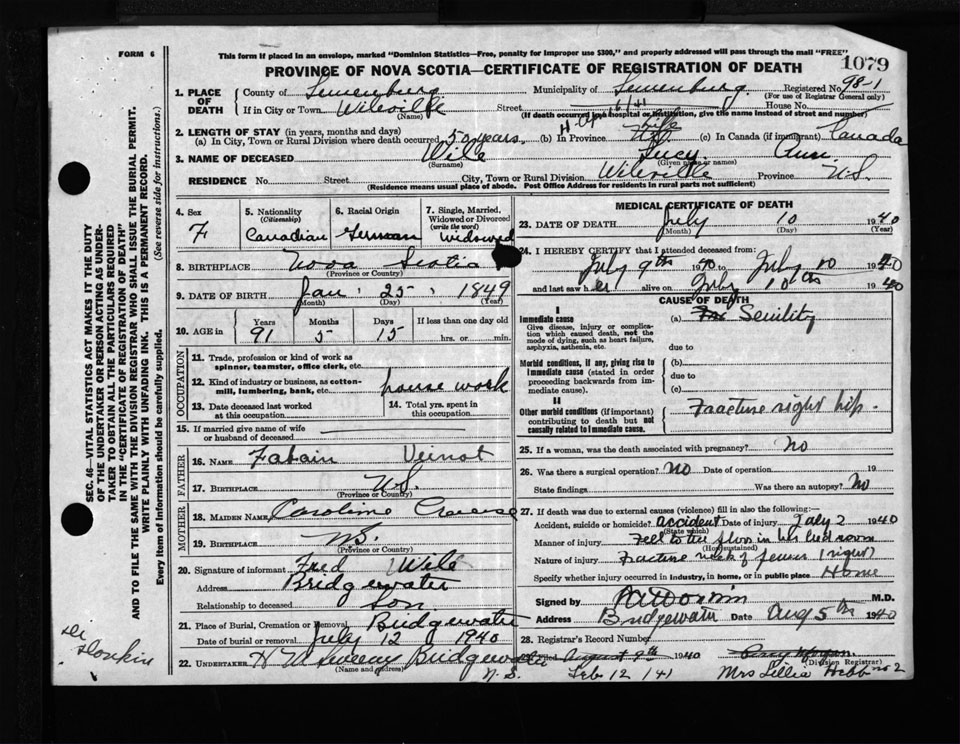 FORM 6
This form if placed in an envelope, marked "Dominion Statistics—Free, penalty for improper use $300," and properly addressed will pass through the mail "FREE"
1079
PROVINCE OF NOVA SCOTIA—CERTIFICATE OF REGISTRATION OF DEATH
1. PLACE OF DEATH
County of Lunenburg Municipality of Lunenburg Registered No. 98-1
(For use of Registrar General only)
If in City or Town Wileville Street House No.
(Name) (If death occurred in a hospital or institution, give the name instead of street and number)
2. LENGTH OF STAY (in years, months and days)
(a) In City, Town or Rural Division where death occurred 50 years (b) In Province life (c) In Canada (if immigrant) Canada
3. NAME OF DECEASED Wile Lucy Ann
(Surname) (Given name or names)
RESIDENCE No. Street City, Town or Rural Division Wileville Province N.S.
(Residence means usual place of abode. Post Office Address for residents in rural parts not sufficient)
4. Sex F
5. Nationality (Citizenship) Canadian
6. Racial Origin German
7. Single, Married, Widowed or Divorced (write the word) widowed
8. BIRTHPLACE Nova Scotia
(Province or Country)
9. DATE OF BIRTH Jan. 25, 1849
(Month) (Day) (Year)
10. AGE in Years Months Days If less than one day old
91 5 15 hrs. or min.
OCCUPATION
11. Trade, profession or kind of work as spinner, teamster, office clerk, etc.
12. Kind of industry or business, as cotton-mill, lumbering, bank, etc. house work
13. Date deceased last worked at this occupation
14. Total yrs. spent in this occupation
15. If married give name of wife or husband of deceased
FATHER
16. NAME Fabain Veinot
17. BIRTHPLACE N.S.
(Province or Country)
MOTHER
18. MAIDEN NAME Caroline
19. BIRTHPLACE N.S.
(Province or Country)
20. Signature of informant Fred Wile
Address Bridgewater
Relationship to deceased Son
21. Place of Burial, Cremation or Removal Bridgewater
Date of burial or removal July 12 1940
22. UNDERTAKER Sweeny Bridgewater
(Name and address) N.S.
MEDICAL CERTIFICATE OF DEATH
23. DATE OF DEATH July 10 1940
(Month) (Day) (Year)
24. I HEREBY CERTIFY that I attended deceased from:
July 9th 1940 to July 10 1940
and last saw her alive on July 10th 1940
CAUSE OF DEATH
I
Immediate cause
Give disease, injury or complication which caused death, not the mode of dying, such as heart failure, asphyxia, asthenia, etc.
(a) Senility
due to
Morbid conditions, if any, giving rise to immediate cause (stated in order proceeding backwards from immediate cause).
(b)
due to
(c)
II
Other morbid conditions (if important) contributing to death but not causally related to immediate cause.
Fracture right hip.
25. If a woman, was the death associated with pregnancy? No
26. Was there a surgical operation? No Date of operation 19
State findings Was there an autopsy? No
27. If death was due to external causes (violence) fill in also the following:
Accident, suicide or homicide? accident Date of injury July 2 1940
(State which)
Manner of injury Fell to the floor in her bed room
(How sustained)
Nature of injury Fracture neck of femur (right)
Specify whether injury occurred in industry, in home, or in public place Home
Signed by M.D.
Address Bridgewater Date Aug 5th 1940
28. Registrar's Record Number
August 9th 1940
(Division Registrar)
Feb 12/41 Mrs Lillia Hebb no 2
SEC. 46—VITAL STATISTICS ACT MAKES IT THE DUTY
OF THE UNDERTAKER OR PERSON ACTING AS UNDER-
TAKER TO OBTAIN ALL THE PARTICULARS REQUIRED
IN THE "CERTIFICATE OF REGISTRATION OF DEATH"
AND TO FILE THE SAME WITH THE DIVISION REGISTRAR WHO SHALL ISSUE THE BURIAL PERMIT.
WRITE PLAINLY WITH UNFADING INK. THIS IS A PERMANENT RECORD.
Every item of Information should be carefully supplied. (See reverse side for instructions.)
Donkin